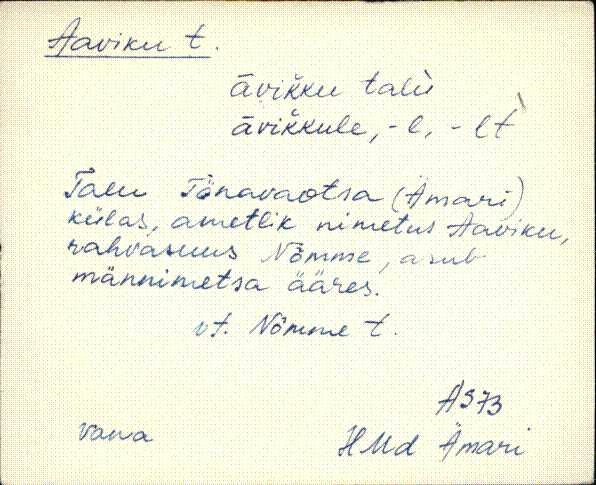 Aaviku t.
āvikku talu
āvikkule, -l, -lt
Talu Tänavaotsa (Ämari)
külas, ametlik nimetus Aaviku,
rahvasuus Nõmme, asub
männimetsa ääres.
vt. Nõmme t.
AS73
vana
HMd Ämari